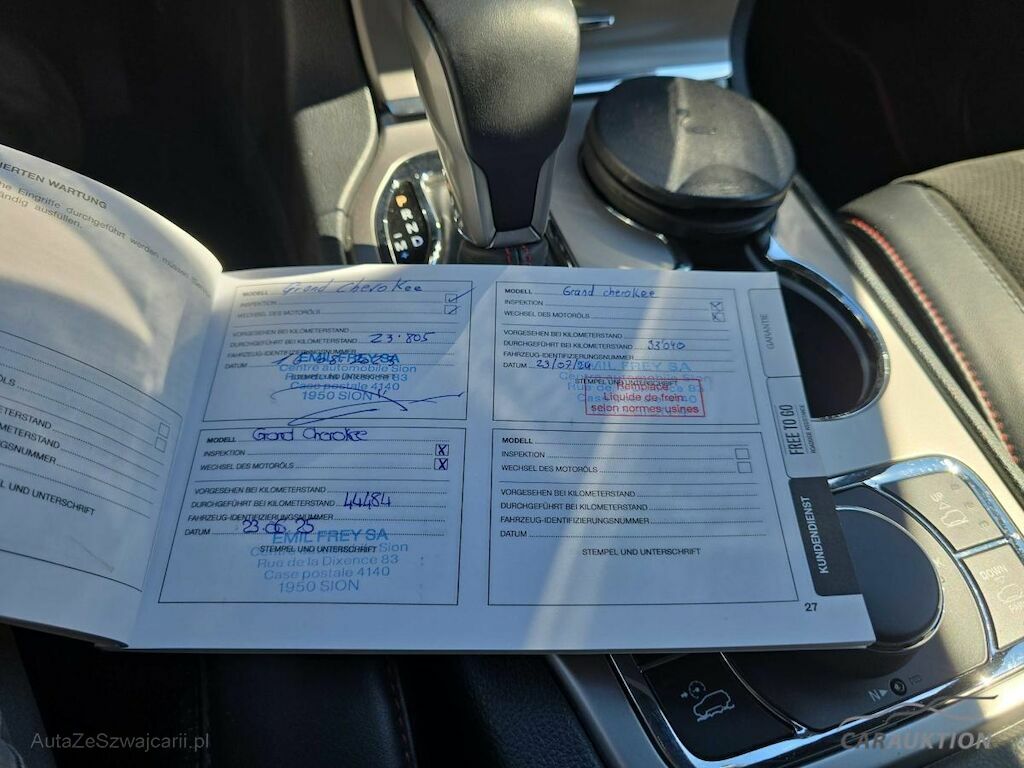 IERTEN WARTUNG
che Eingriffe durchgeführt worden, müssen
ständig ausfüllen.
ÖLS
METERSTAND
METERSTAND
NGSNUMMER
EL UND UNTERSCHRIFT
P
R
N
D
M
MODELL Grand Cherokee
INSPEKTION
WECHSEL DES MOTORÖLS
VORGESEHEN BEI KILOMETERSTAND
DURCHGEFÜHRT BEI KILOMETERSTAND 23.805
FAHRZEUG-IDENTIFIZIERUNGSNUMMER
DATUM
EMIL FREY SA
Centre automobile Sion
STEMPEL UND UNTERSCHRIFT
Case postale 4140
1950 SION
MODELL Grand cherokee
INSPEKTION X
WECHSEL DES MOTORÖLS X
VORGESEHEN BEI KILOMETERSTAND
DURCHGEFÜHRT BEI KILOMETERSTAND 33'040
FAHRZEUG-IDENTIFIZIERUNGSNUMMER
DATUM 23/07/24
EMIL FREY SA
Centre automobile Sion
STEMPEL UND UNTERSCHRIFT
Remplacé
Liquide de frein
selon normes usines
MODELL Grand Cherokee
INSPEKTION X
WECHSEL DES MOTORÖLS X
VORGESEHEN BEI KILOMETERSTAND
DURCHGEFÜHRT BEI KILOMETERSTAND 44484
FAHRZEUG-IDENTIFIZIERUNGSNUMMER
DATUM 23.06.25
EMIL FREY SA
Centre automobile Sion
STEMPEL UND UNTERSCHRIFT
Rue de la Dixence 83
Case postale 4140
1950 SION
MODELL
INSPEKTION
WECHSEL DES MOTORÖLS
VORGESEHEN BEI KILOMETERSTAND
DURCHGEFÜHRT BEI KILOMETERSTAND
FAHRZEUG-IDENTIFIZIERUNGSNUMMER
DATUM
STEMPEL UND UNTERSCHRIFT
27
GARANTIE
FREE TO GO
KUNDENDIENST
UP
DOWN
N
AutaZeSzwajcarii.pl
CARAUKTION